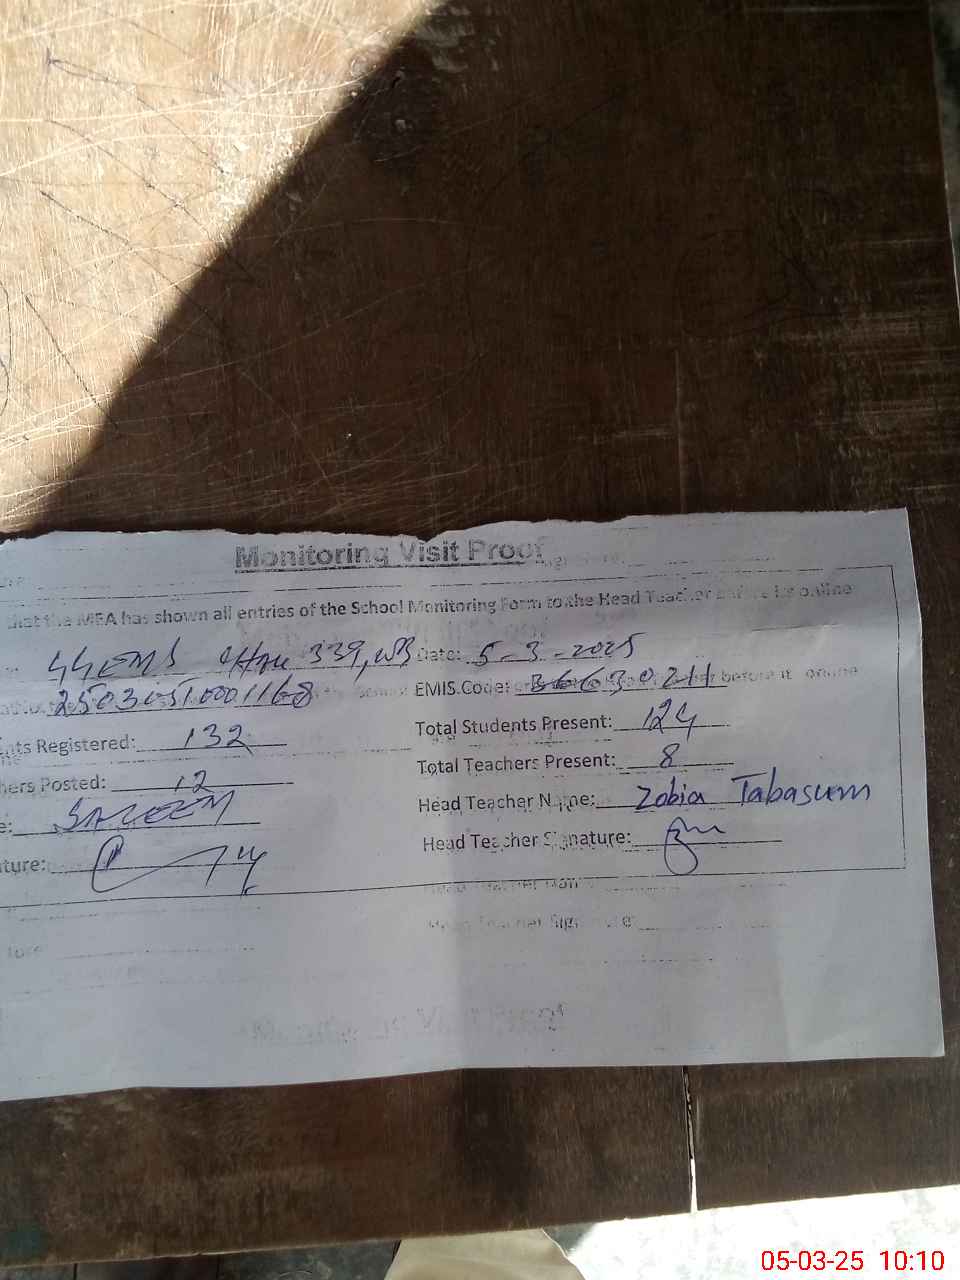 Monitoring Visit Proof
that the MEA has shown all entries of the School Monitoring Form to the Head Teacher before its online
339, WB Date: 5-3-2025
25030510001168 EMIS Code: 36630211
nts Registered: 132 Total Students Present: 124
hers Posted: 12 Total Teachers Present: 8
e: SALEEM Head Teacher Name: Zobia Tabasum
ture: Head Teacher Signature:
05-03-25 10:10